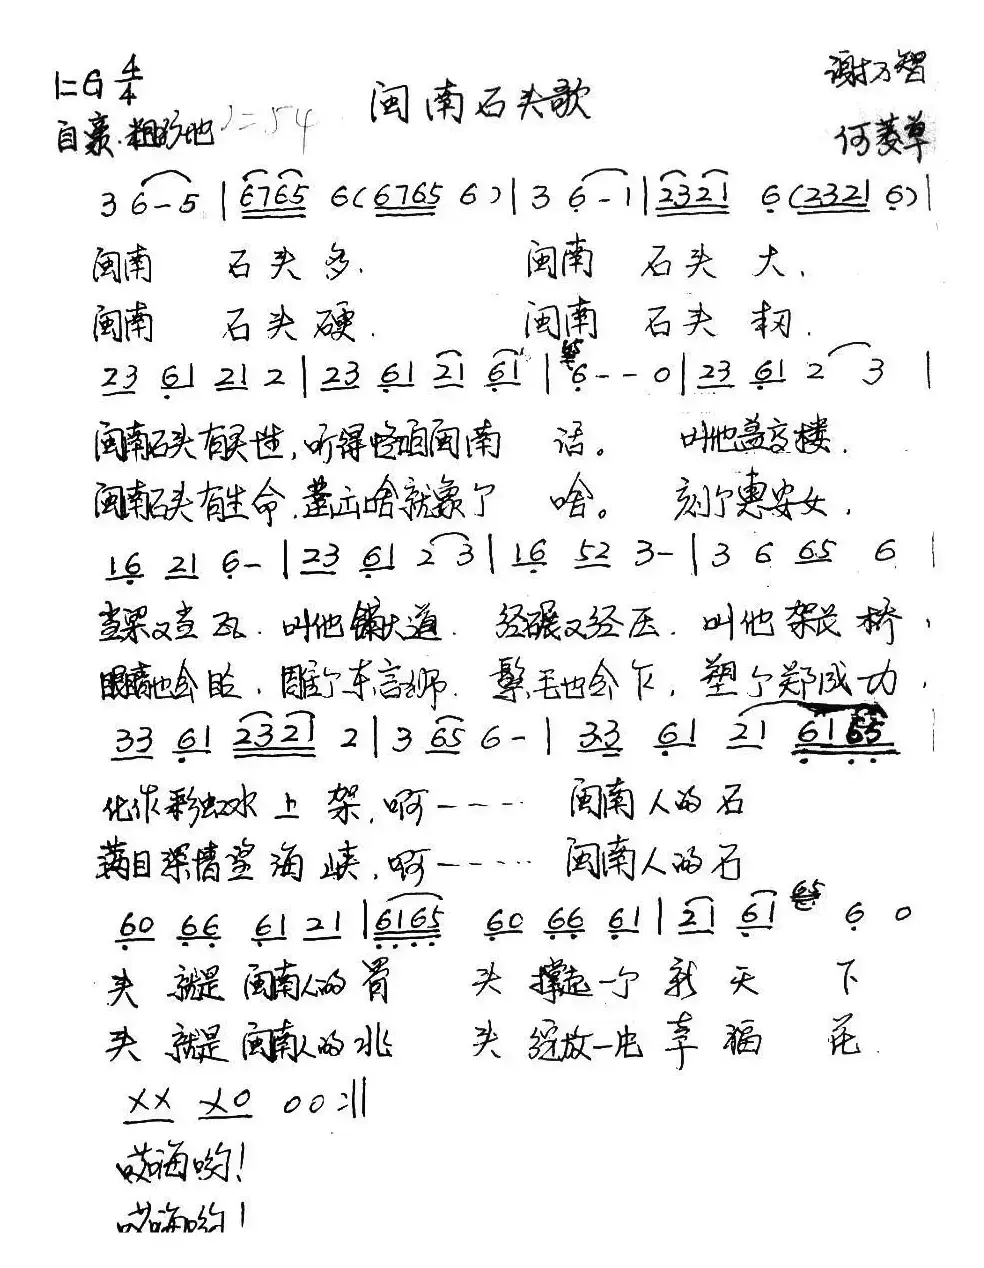 1=G 4/4
闽南石头歌
谢万智
自豪.粗犷地 ♩=54
何菱草
3 6 - 5 | 6765 6 (6765 6) | 3 6 - 1 | 2321 6 (2321 6) |
闽南 石头多. 闽南 石头大.
闽南 石头硬. 闽南 石头韧.
23 61 21 2 | 23 61 21 61 | 6 - - 0 | 23 61 2 3 |
闽南石头有灵性,听得懂咱闽南 话。 叫他盖高楼.
闽南石头有生命.凿出啥就象了 啥。 刻个惠安女,
16 21 6 - | 23 61 2 3 | 16 52 3 - | 3 6 65 6 |
当梁又当瓦. 叫他铺大道. 经碾又经压. 叫他架长桥,
眼睛也会眨, 雕个东方狮. 鬃毛也会乍, 塑个郑成功,
33 61 2321 2 | 3 65 6 - | 33 61 21 6165 |
化作彩虹水上架,啊————…… 闽南人的石
满目深情望海峡,啊————…… 闽南人的石
60 66 61 21 | 6165 60 66 61 | 21 61 65 6 0
头 就是闽南人的骨 头 撑起一个新天 下
头 就是闽南人的兆 头 绽放一片幸福 花
XX X0 0 0 :||
哎嗨哟!
哎嗨哟!